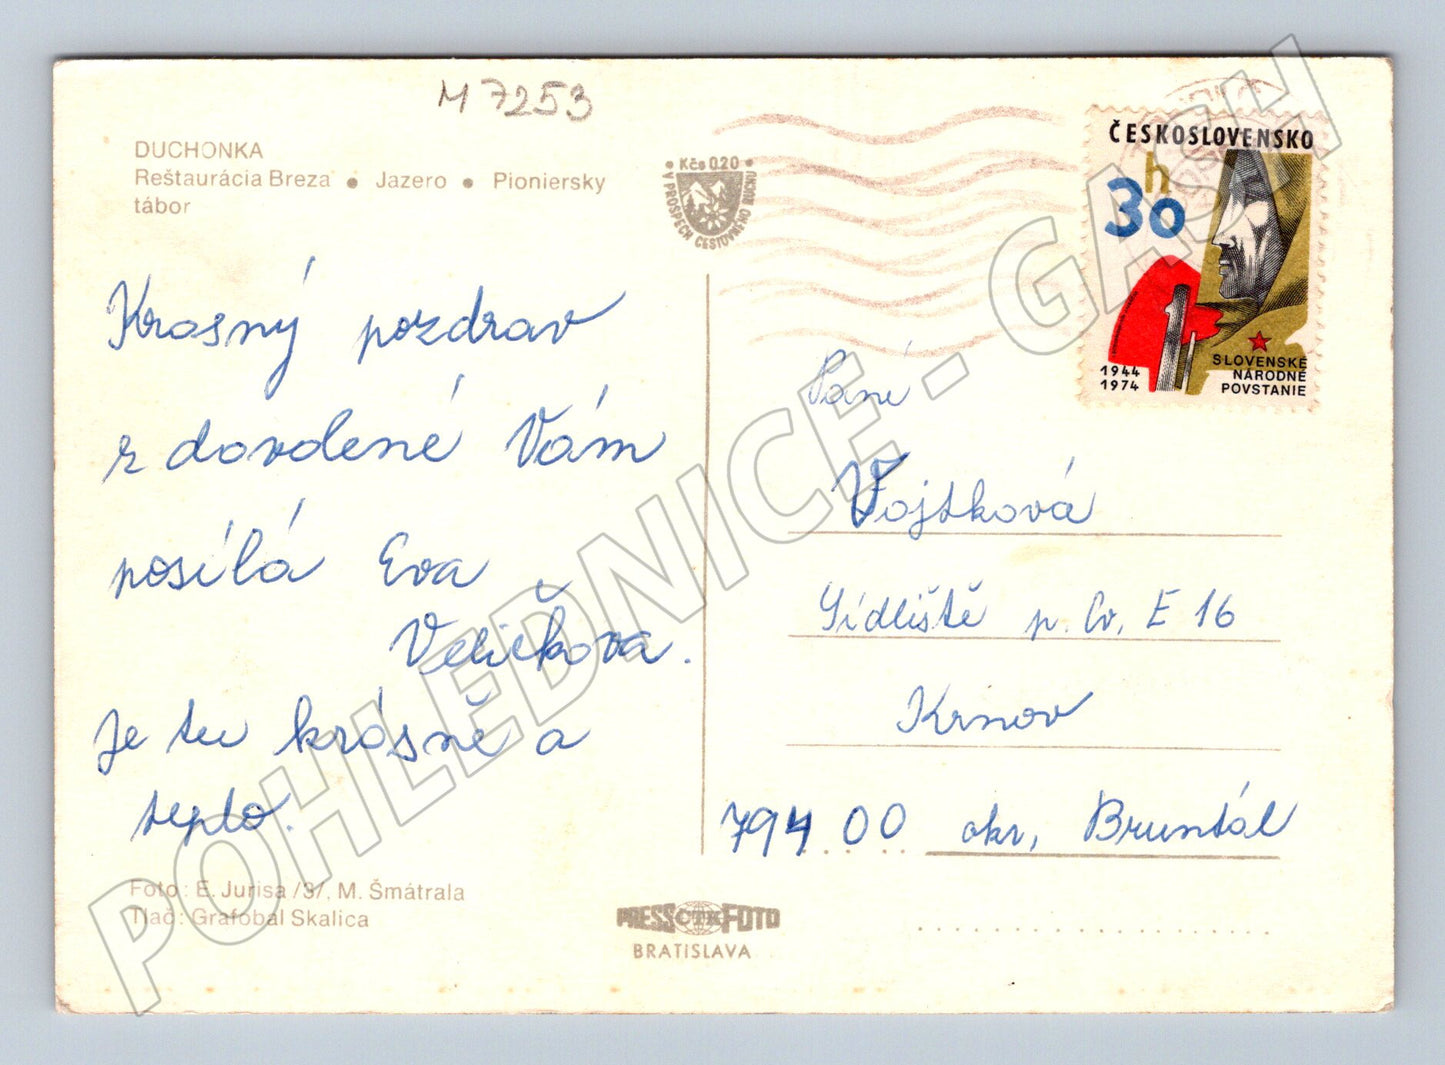 M 7253
DUCHONKA
Reštaurácia Breza • Jazero • Pioniersky
tábor
Kčs 0.20
V PROSPECH CESTOVNÉHO RUCHU
ČESKOSLOVENSKO
30 h
1944
1974
SLOVENSKÉ
NÁRODNÉ
POVSTANIE
Krasný pozdrav
z dovolené Vám
posílá Eva
Veličkova.
Je tu krásně a
teplo.
Foto: E. Jurisa /3/, M. Šmátrala
Tlač: Grafobal Skalica
PRESS ČTK FOTO
BRATISLAVA
Paní
Vojtková
Sídliště p. Cv. E 16
Krnov
794 00 okr. Bruntál
POHLEDNICE - GASH